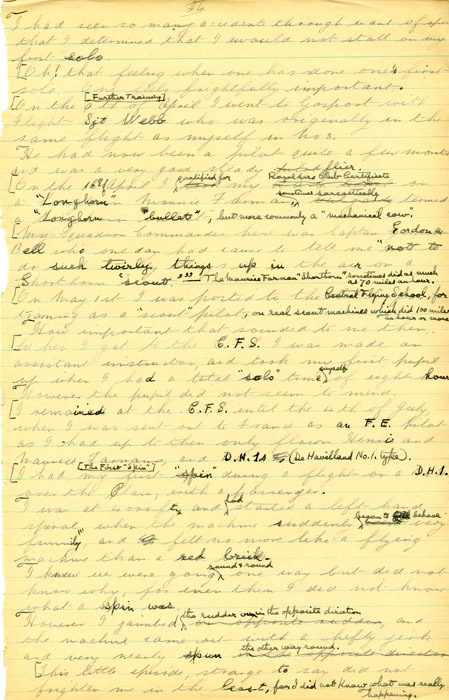 34
I had seen so many accidents through want of speed
that I determined that I would not stall on my
first solo.
[Oh! that feeling when one has done one's first
solo frightfully important.
[Further Training]
[On the 9th of April I went to Gosport with
Flight Sgt Webb who was originally in the
same flight as myself in No 3.
He had now been a pilot quite a few months
and was a very good steady flier.
[On the 16th April I qualified for my Royal Aero Club Certificate on
a "Longhorn" Maurice Farman, sometimes sarcastically termed
a "Longhorn bullet", but more commonly a "mechanical cow."
[My Squadron Commander here was Captain Gordon
Bell who one day had cause to tell me "not to
do such twirly things up in the air on a
Shorthorn scout." The Maurice Farman "Shorthorn" sometimes did as much
as 70 miles an hour.
[On May 1st I was posted to the Central Flying School, for
training as a "scout" pilot, on real scout machines which did 100 miles
an hour or more
How important that sounded to me then.
[When I got to the C.F.S. I was made an
assistant instructor, and took my first pupil
up when I had a total "solo" time myself of eight hour
however the pupil did not seem to mind.
[I remained at the C.F.S. until the 4th of July
when I was sent out to France as an F.E. pilot
as I had up to then only flown Henri and
Maurice Farmans, and D.H.1s (De Havilland No. 1. type).
[The First "Spin"]
[I had my first "spin" during a flight on a D.H.1.
over the Plain, with a passenger.
I was at 4000 ft and had started a left hand
spiral, when the machine suddenly began to behave very
funnily, and felt no more like a flying
machine than a red brick.
I knew we were going round & round one way but did not
know why, for even then I did not know
what a spin was.
However I jambed the rudder over in the opposite direction
the machine came out with a hefty jerk
and very nearly spun the other way round.
[This little episode, strange to say did not
frighten me in the least, for I did not know what was really
happening.